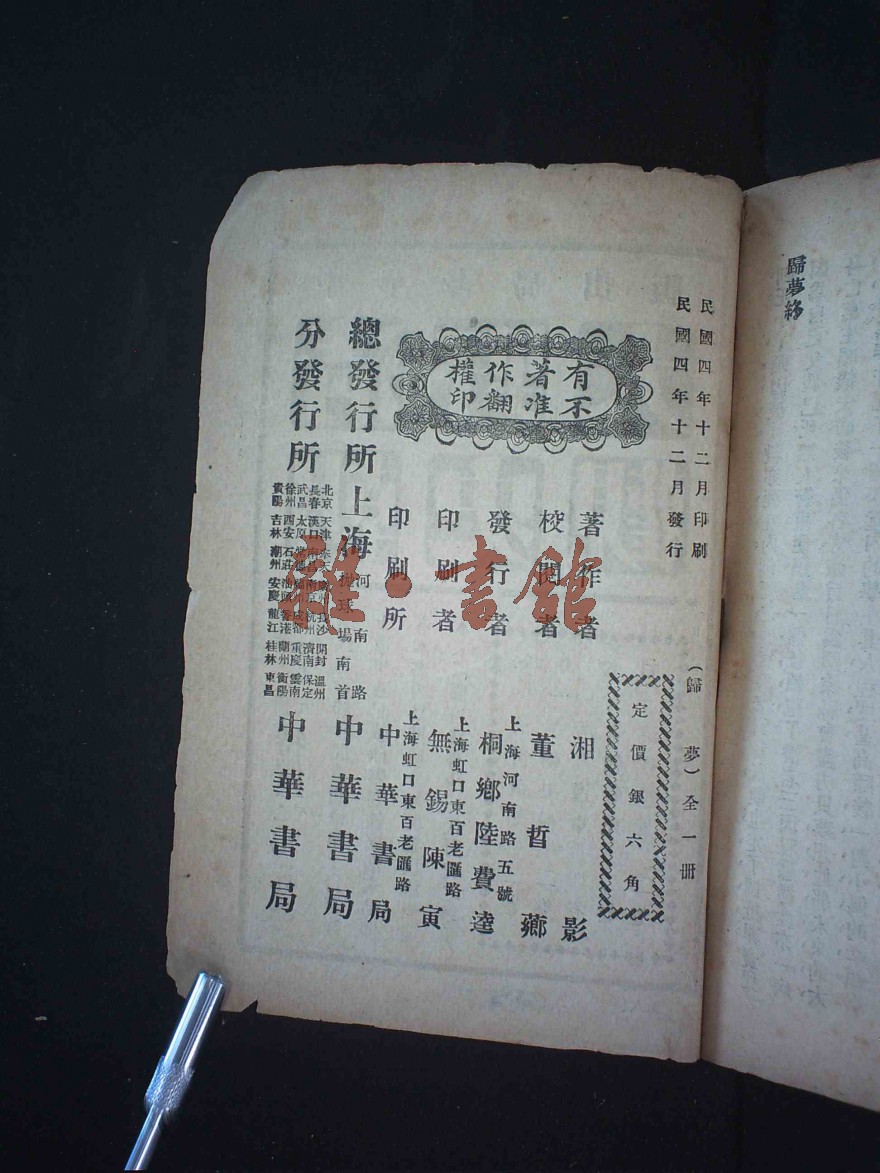 歸夢終
民國四年十二月印刷
民國四年十二月發行
(歸夢)全一冊
定價銀六角
有著作權
不准翻印
著作者 湘影
校閱者 董晳薌
發行者 桐鄉陸費逵
上海河南路五號
印刷者 無錫陳寅
上海虹口東百老匯路
印刷所 中華書局
上海虹口東百老匯路
總發行所 上海
河南路
拋球場南首
中華書局
分發行所
北京 天津
長春 漢口
武昌 太原
徐州 西安
貴陽 吉林
開封 溫州
濟南 保定
重慶 雲南
蘭州 衡陽
桂林 東昌
潮州 安慶 龍江
成都
香港
杭州
中華書局
雅·書館